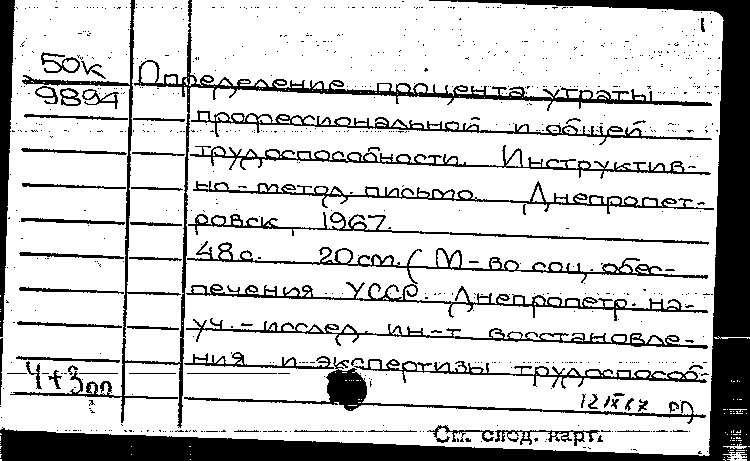 1
50к
9894
Определение процента утраты
профессиональной и общей
трудоспособности. Инструктив-
но-метод. письмо. Днепропет-
ровск, 1967.
48с. 20см. (М-во соц. обес-
печения УССР. Днепропетр. на-
уч.-исслед. ин-т восстановле-
ния и экспертизы трудоспособ-
12 IX 67
См. след. карт.